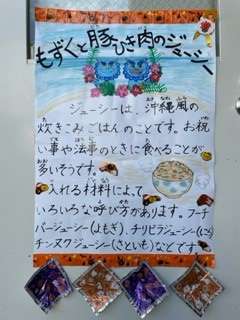 もずくと豚ひき肉のジューシー
ジューシーは、沖縄風の
炊きこみごはんのことです。お祝
い事や法事のときに食べることが
多いそうです。
入れる材料によって
いろいろな呼び方があります。フーチ
バージューシー(よもぎ)、チリビラジューシー(にら)
チンヌクジューシー(さといも)などです